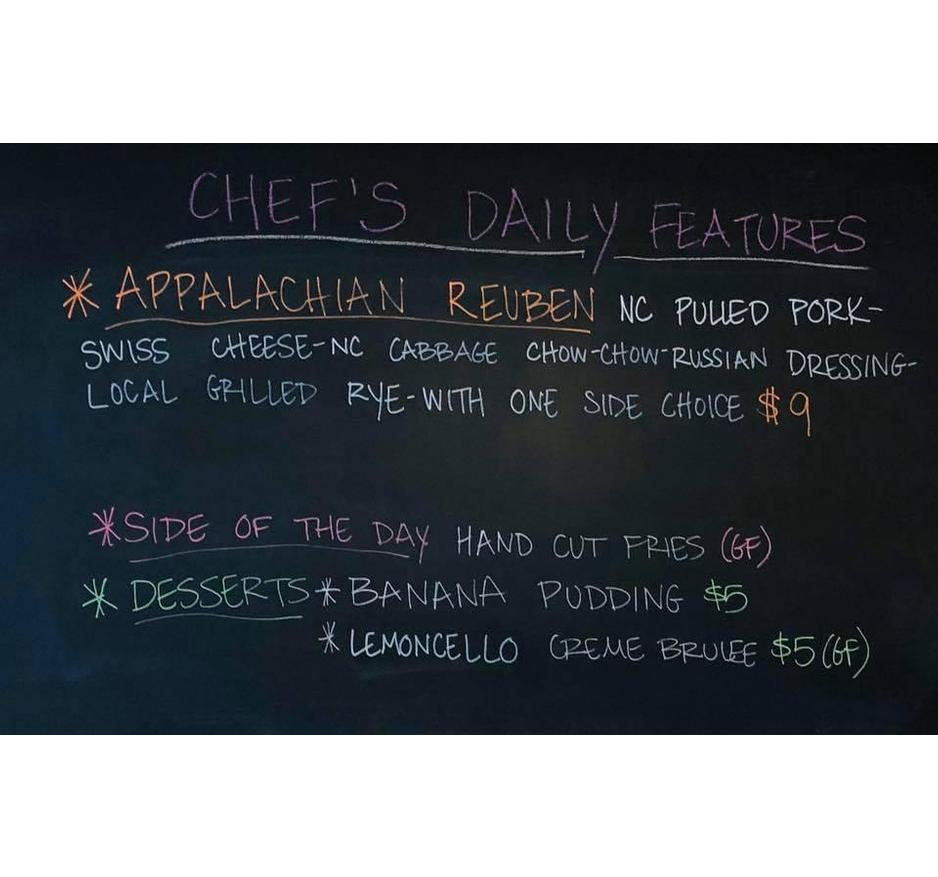 CHEF'S DAILY FEATURES
* APPALACHIAN REUBEN NC PULLED PORK-
SWISS CHEESE-NC CABBAGE CHOW-CHOW-RUSSIAN DRESSING-
LOCAL GRILLED RYE-WITH ONE SIDE CHOICE $9
*SIDE OF THE DAY HAND CUT FRIES (GF)
* DESSERTS * BANANA PUDDING $5
* LEMONCELLO CREME BRULEE $5 (GF)